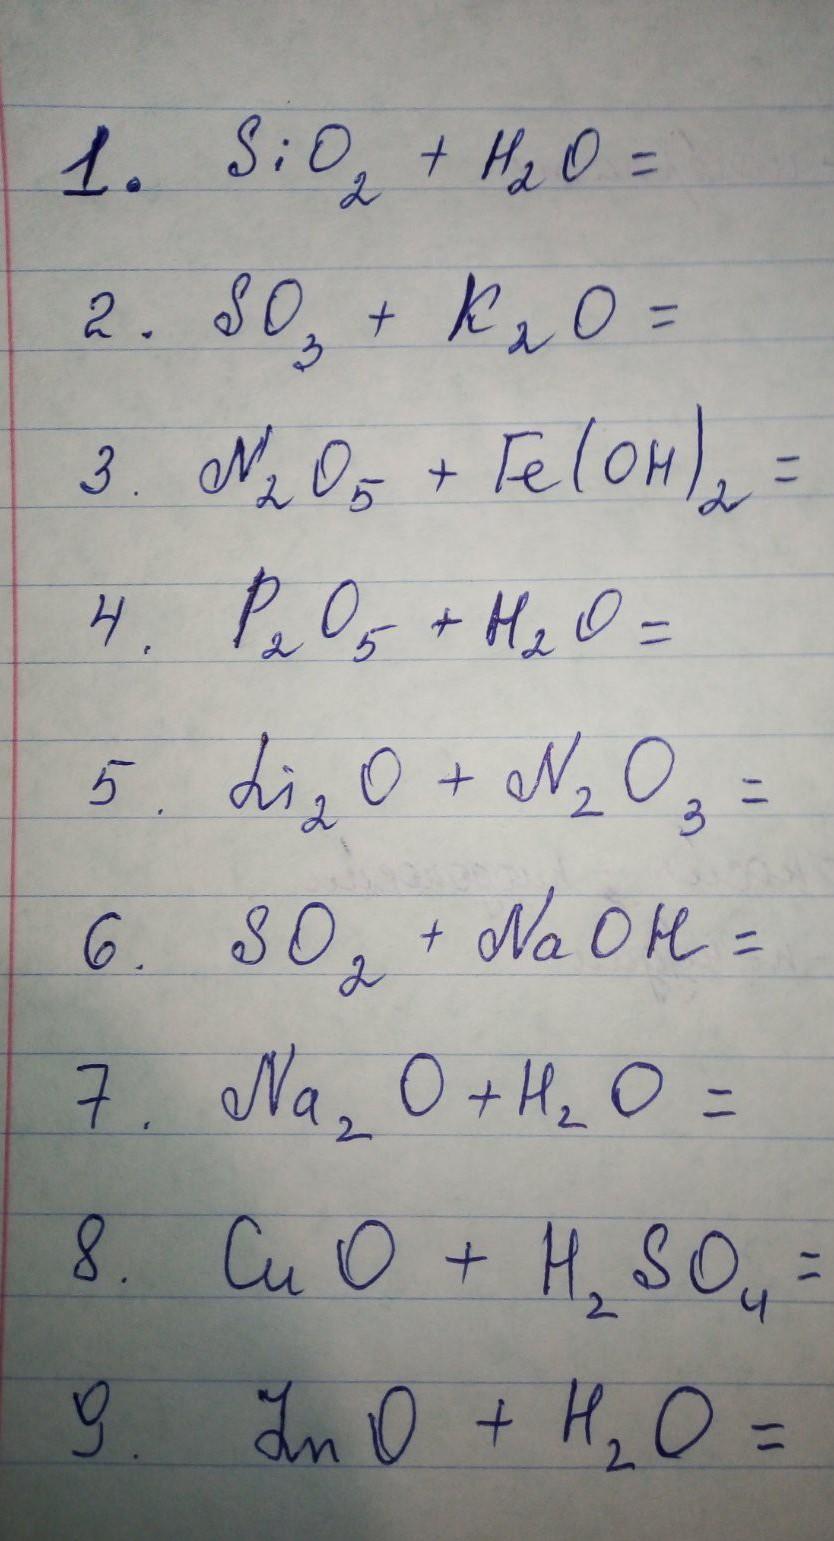 1. SiO₂ + H₂O =
2. SO₃ + K₂O =
3. N₂O₅ + Fe(OH)₂ =
4. P₂O₅ + H₂O =
5. Li₂O + N₂O₃ =
6. SO₂ + NaOH =
7. Na₂O + H₂O =
8. CuO + H₂SO₄ =
9. ZnO + H₂O =